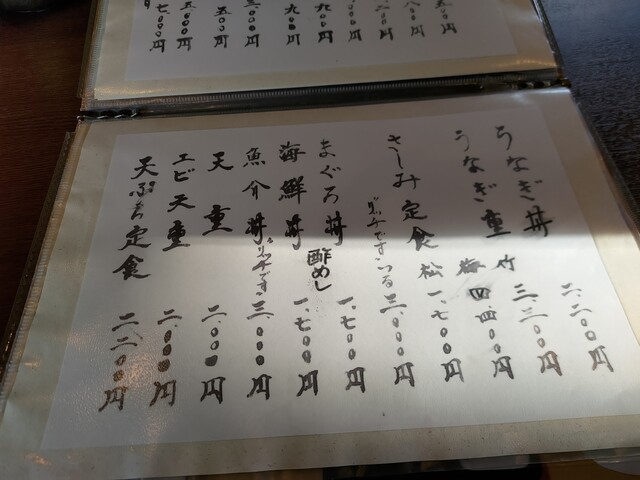 五〇〇円
八〇〇円
九〇〇円
九〇〇円
うなぎ丼 二.二〇〇円
うなぎ重 竹 三.二〇〇円
梅 四.四〇〇円
さしみ定食 一.七〇〇円
松 三.〇〇〇円
まぐろ丼 一.七〇〇円
海鮮丼 酢めし 一.七〇〇円
魚介丼 リッチです 三.〇〇〇円
天重 二.〇〇〇円
エビ天重 二.〇〇〇円
天ぷら定食 二.二〇〇円